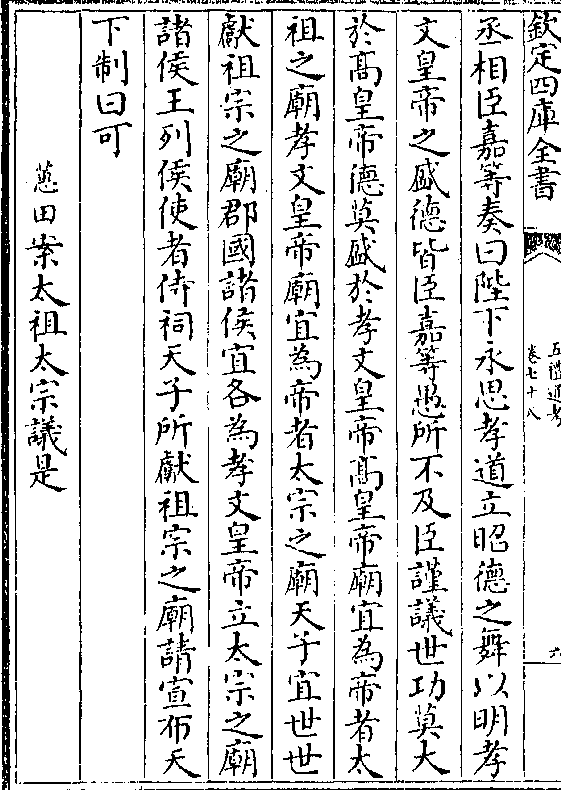 欽定四庫全書
五禮通考
卷七十八
六
丞相臣嘉等奏曰陛下永思孝道立昭德之舞以明孝
文皇帝之盛德皆臣嘉等愚所不及臣謹議世功莫大
於髙皇帝德莫盛於孝文皇帝髙皇帝廟宜為帝者太
祖之廟孝文皇帝廟宜為帝者太宗之廟天子宜世世
獻祖宗之廟郡國諸侯宜各為孝文皇帝立太宗之廟
諸侯王列侯使者侍祠天子所獻祖宗之廟請宣布天
下制曰可
蕙田案太祖太宗議是